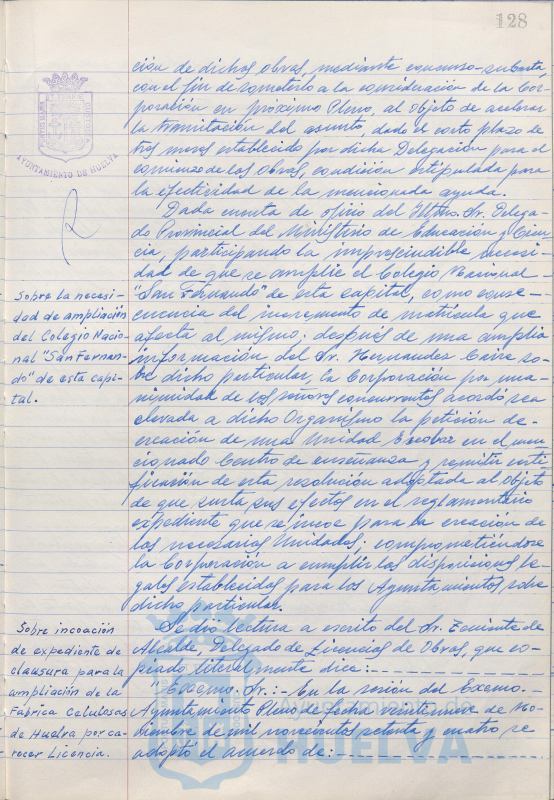 128
AYUNTAMIENTO DE HUELVA
ción de dichas obras, mediante concurso-subasta,
con el fin de someterlo a la consideración de la Cor-
poración en próximo Pleno, al objeto de acelerar
la tramitación del asunto, dado el corto plazo de
tres meses establecido por dicha Delegación para el
comienzo de las obras, condición estipulada para
la efectividad de la mencionada ayuda.
Dada cuenta de oficio del Iltmo. Sr. Delega-
do Provincial del Ministerio de Educación y Cien-
cia, participando la imprescindible necesi-
dad de que se amplíe el Colegio Nacional-
"San Fernando" de esta capital, como conse-
cuencia del incremento de matrícula que
afecta al mismo; después de una amplia
información del Sr. Hernández so-
bre dicho particular, la Corporación por una-
nimidad de los señores concurrentes acordó sea
elevada a dicho Organismo la petición de-
creación de una Unidad Escolar en el men-
cionado Centro de enseñanza y remitir certi-
ficación de esta resolución adoptada al objeto
de que surta sus efectos en el reglamentario
expediente que se incoe para la creación de
las necesarias Unidades; comprometiéndose
la Corporación a cumplir las disposiciones le-
gales establecidas para los Ayuntamientos sobre
dicho particular.
Sobre la necesi-
dad de ampliación
del Colegio Nacio-
nal "San Fernan-
do" de esta capi-
tal.
Se dio lectura a escrito del Sr. Teniente de
Alcalde, Delegado de Licencias de Obras, que co-
piado literalmente dice:
"Excmo. Sr.:- En la sesión del Excmo.-
Ayuntamiento Pleno de fecha veintinueve de No-
biembre de mil novecientos setenta y cuatro se
adoptó el acuerdo de:
Sobre incoación
de expediente de
clausura para la
ampliación de la
Fábrica Celulosas
de Huelva por ca-
recer Licencia.
Ayuntamiento de
HUELVA